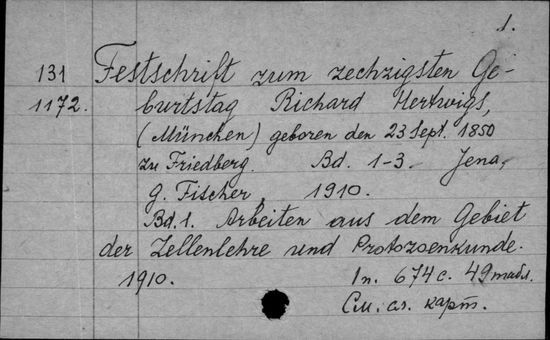 1.
131 Festschrift zum zechzigsten Ge-
1172. burtstag Richard Hertwigs,
(München) geboren den 23 Sept. 1850
zu Friedberg. Bd. 1-3. Jena,
G. Fischer, 1910.
Bd. 1. Arbeiten aus dem Gebiet
der Zellenlehre und Protozoenkunde.
1910. In. 674 с. 49 табл.
См. сл. карт.